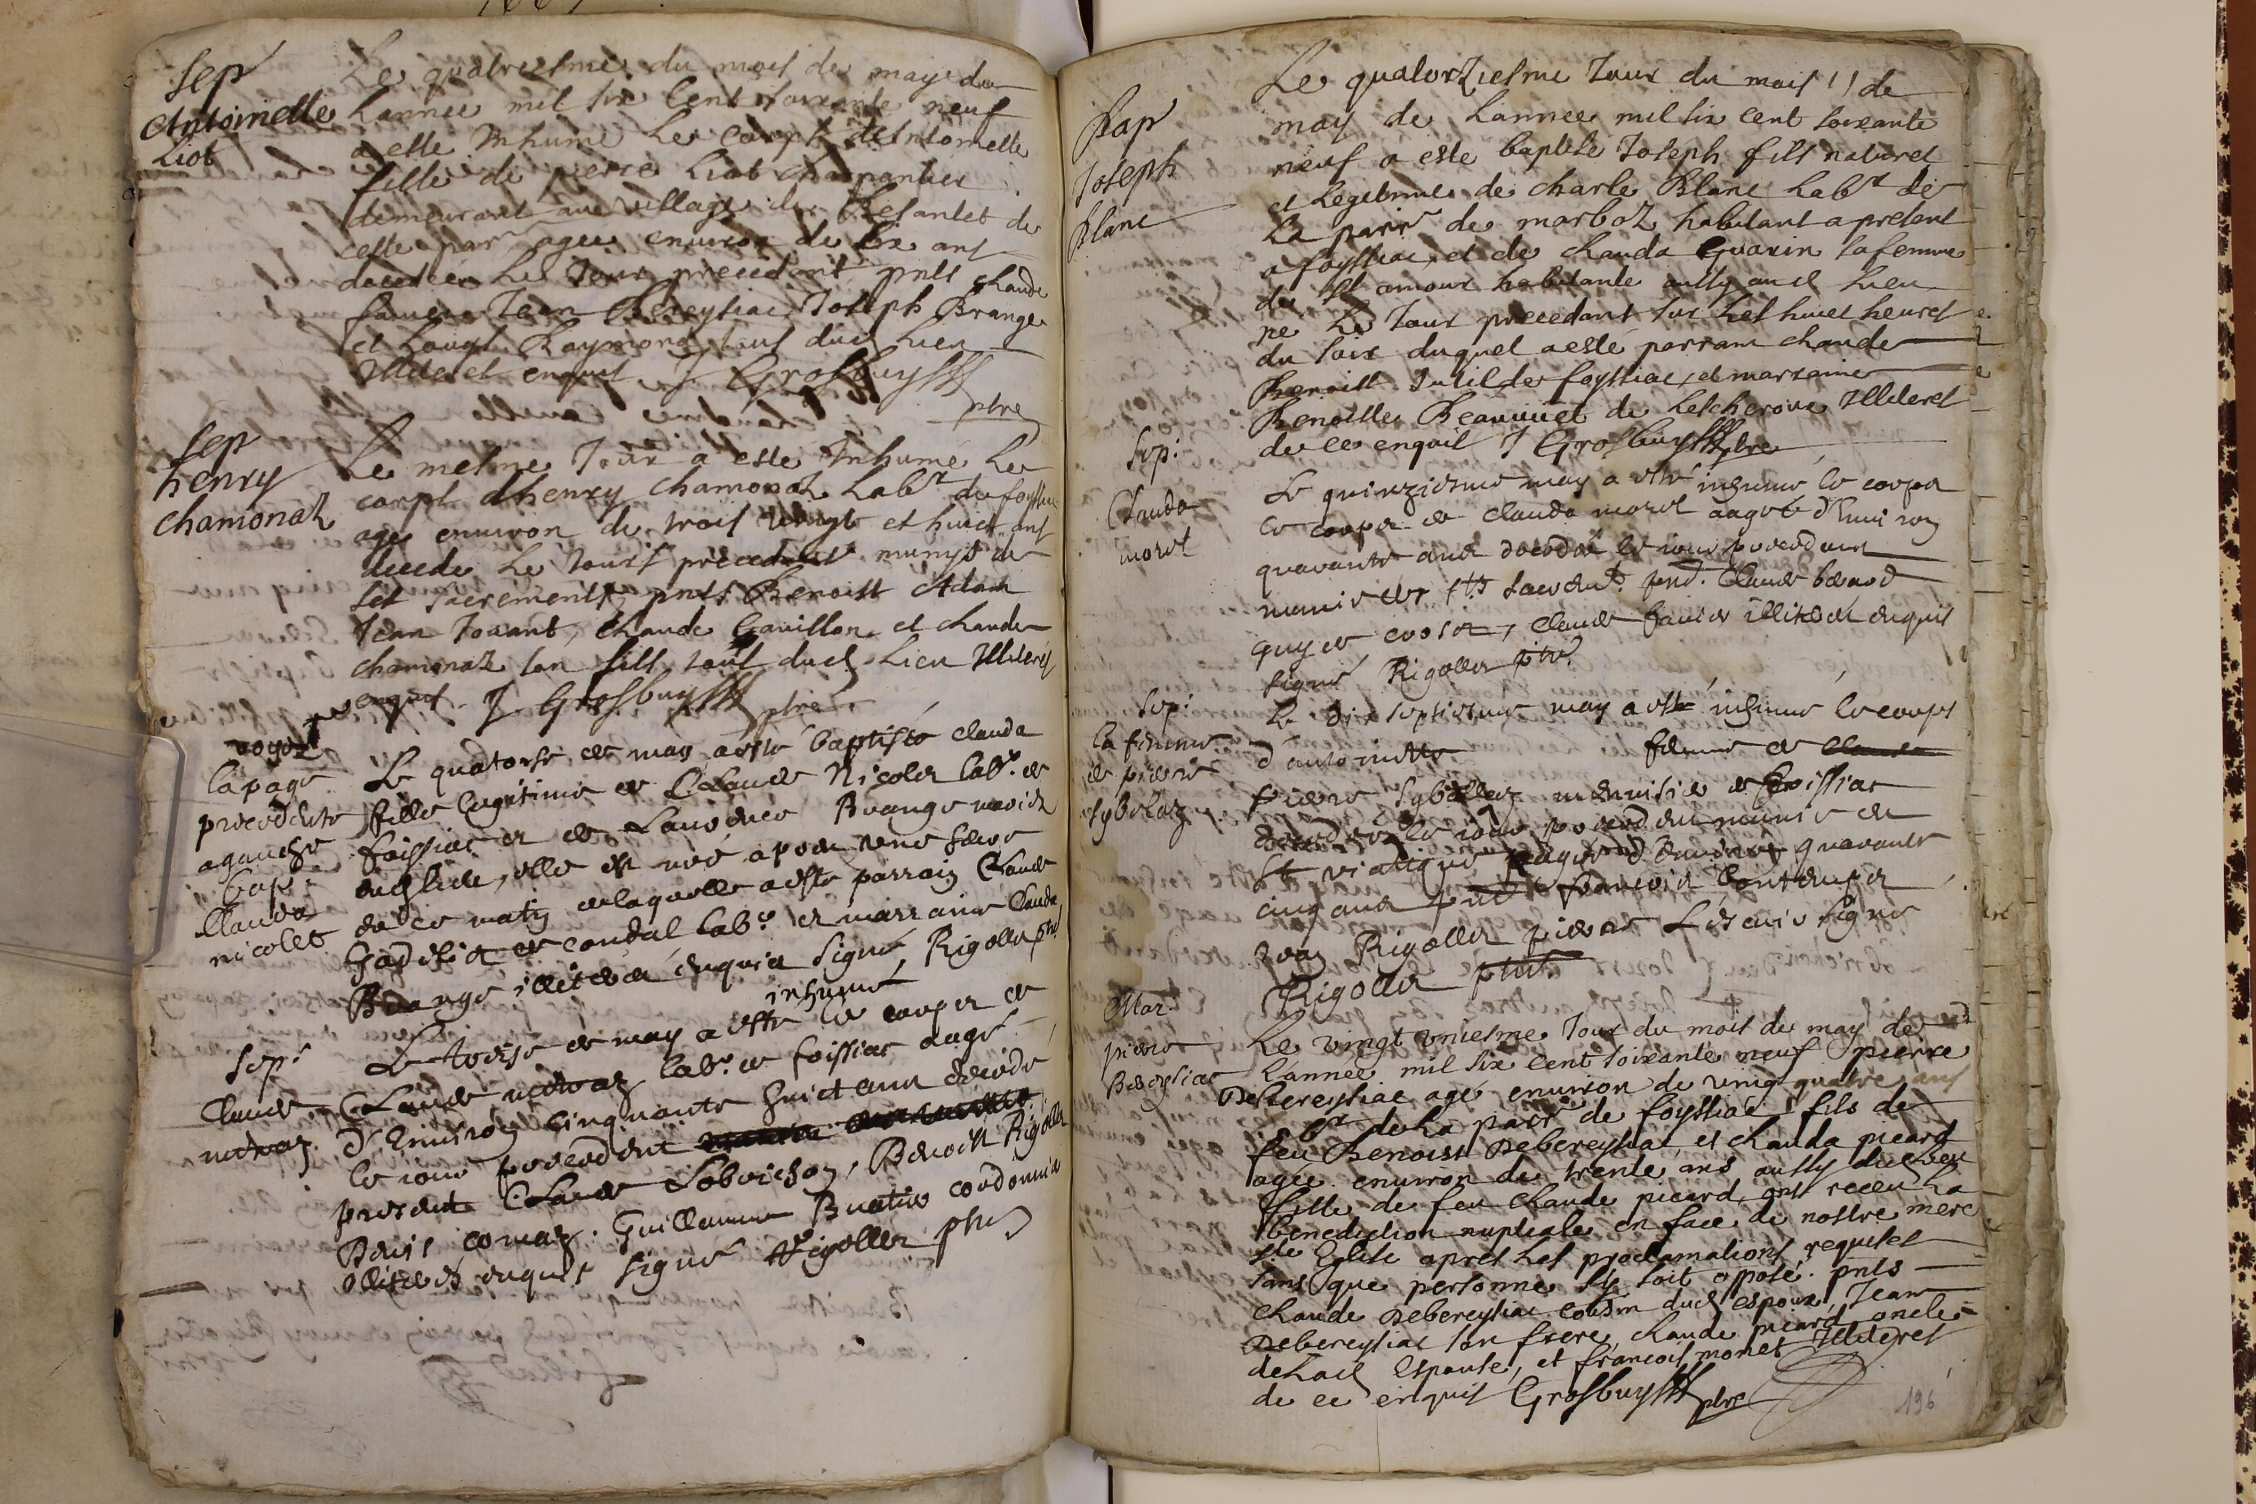 Sep
Antoinette
Liot
Le quatresme du mois de may de
Lannee mil six Cent soixante neuf
a este Inhumé Le corps dAntoinette
fille de pierre Liot charpantier
demeurant au village de Besantet de
ceste parr agee environ de six ans
decedée Le Jour precedent pnts Claude
Jean Bereysiac Joseph Brange
et Raymond tous dud Lieu
Illiteres enquis J Grosbuysss
ptre
Sep
henry
chamonaz
Le mesme Jour a este Inhumé Le
corps dhenry Chamonaz Labr de foyssia
age environ de trois vingt et huict ans
decede Le Jours precedent munys de
ses sacrements pnts Benoist Adam
Jean Jouant, Claude Gauillon et Claude
chamonaz son fils tous dud Lieu Illiteres
enquis J Grosbuysss ptre
voyez
la page
precedente
a gauche
bap.
Clauda
nicolet
Le quatorse de may a esté baptisée clauda
fille legitime de Claude Nicolet labr. de
foissiac et de Laurence Brange mariez
en eglise, elle est née
de ce matin de laquelle a este parrain Claude
de condal labr et marraine Clauda
Brange illiteré enquis signé Rigollet ptre
Sep.
Claude
inhumé
Le treise de may a esté le corps de
Claude labr. de foissiac aagé
d'Environ cinquante huict ans decede
le iour precedent
present Claude Lobrichon, Benoist Rigollet
Denis comaz. Guillaume Buatier cordonnier
Illiteres enquis signé Rigollet ptre
Bap
Joseph
Blanc
Le quatorziesme Jour du mois de
may de Lannee mil six cent soixante
neuf a este baptise Joseph fils naturel
et Legetime de charle Blanc Labr de
La parr de marboz habitant a present
a foyssiac, et de Clauda Guarin sa femme
de St amour habitante aussy aud Lieu
ne Le Jour precedant sur Les huict heures
du soir duquel a esté parrain Claude
Benoist Jutil de foyssiac, et marraine
Benoitte Beauvuet de Lescheroux Illiteres
de ce enquis J Grosbuysss ptre
Sep:
Clauda
morel
Le quinziesme may a esté inhumé le corps
le corps de clauda morel aagée d'Environ
quarante ans decedée le iour precedent
munie des sts sacremts. pnt. Claude berard
guy croset, Claude favier illiteré enquis
signé Rigollet ptre
Sep:
la femme
de pierre
sybelaz
Le dix septiesme may a esté inhumé le corps
d'antoinette femme de Claude
pierre Sybellaz menuisier de foissiac
decedée le iour precedent munie du
St viatique aagée d'Environ quarante
cinq ans pnt francois
Rigollet pierre signé
Rigollet ptre
Mar.
pierre
Bereysiac
Le vingt uniesme Jour du mois de may de
Lannee mil six cent soixante neuf pierre
Debereysiac agé environ de ving quatre ans
de La parr de foyssiac, fils de
feu Benoist Debereysiac et Clauda picard
agée environ de trente ans aussy dud Lieu
fille de feu Claude picard, ont receu La
benediction nuptiale en face de nostre mere
ste Eglise apres Les proclamations requises
sans que personne sy soit oposé. pnts
Claude Debereysiac cousin dud espoux, Jean
Debereysiac son frere, Claude picard oncle
de Lad Espouse, et francois monet Illiteres
de ce enquis Grosbuysss ptre
196